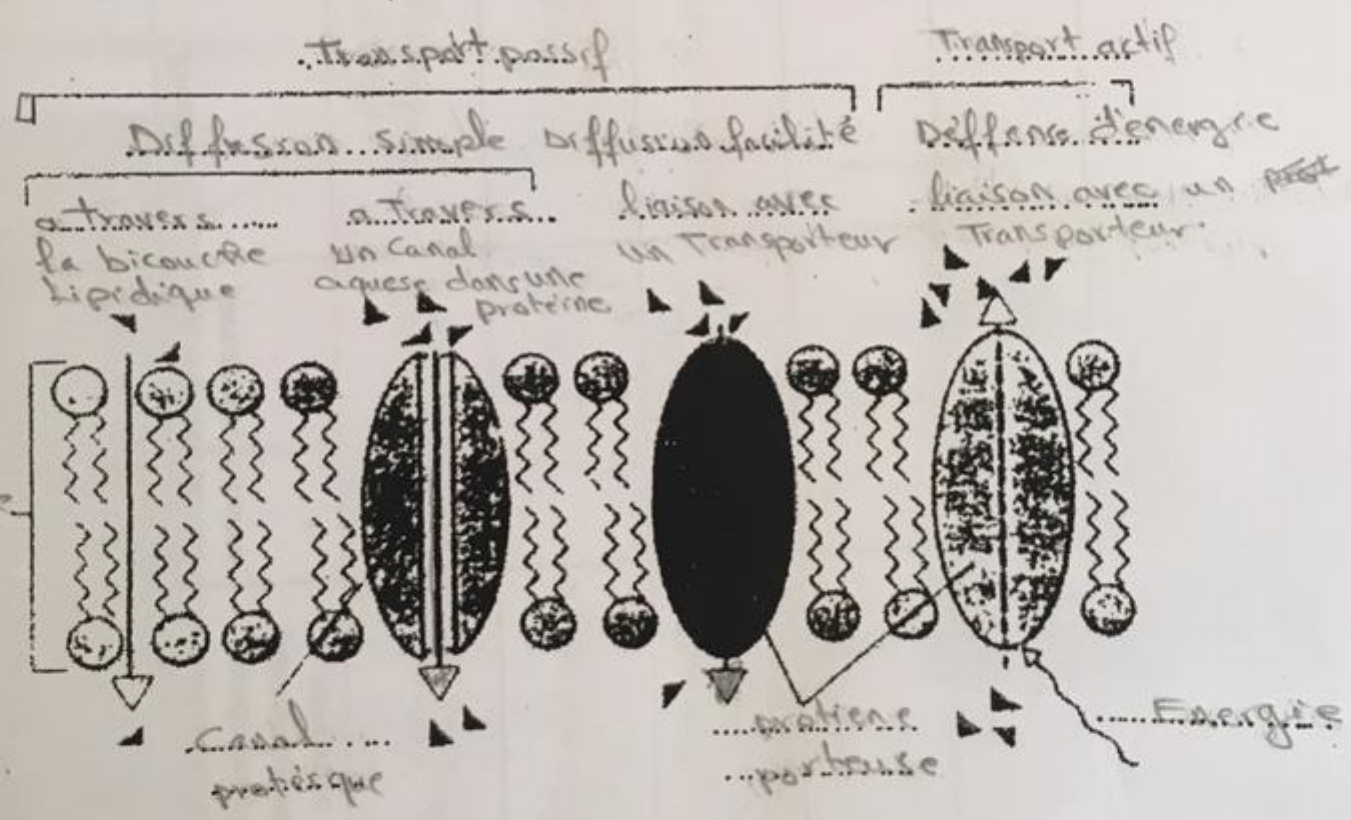 Transport passif
Transport actif
Diffesion simple
Diffusion facilité
Déffense d'energie
a travers
la bicouche
Lipidique
a travers
un Canal
aquese dans une
proteine
liaison avec
un Transporteur
liaison avec un
Transporteur.
Canal
protésque
protiene
porteuse
Energie